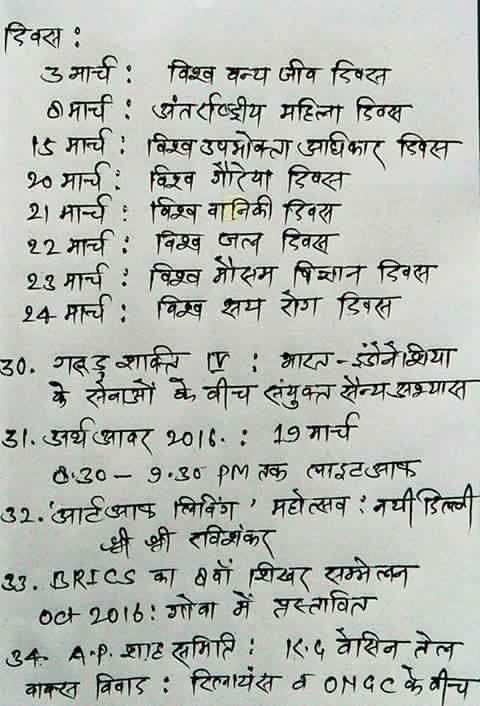 दिवस :
3 मार्च : विश्व वन्य जीव दिवस
8 मार्च : अंतर्राष्ट्रीय महिला दिवस
15 मार्च : विश्व उपभोक्ता अधिकार दिवस
20 मार्च : विश्व गौरेया दिवस
21 मार्च : विश्व वानिकी दिवस
22 मार्च : विश्व जल दिवस
23 मार्च : विश्व मौसम विज्ञान दिवस
24 मार्च : विश्व क्षय रोग दिवस
30. गरूड़ शक्ति IV : भारत - इंडोनेशिया
के सेनाओं के बीच संयुक्त सैन्य अभ्यास
31. अर्थ आवर 2016. : 19 मार्च
8.30 - 9.30 PM तक लाइट आफ
32. 'आर्ट आफ लिविंग' महोत्सव : नयी दिल्ली
श्री श्री रविशंकर
33. BRICS का 8वाँ शिखर सम्मेलन
Oct 2016 : गोवा में प्रस्तावित
34. A.P. शाह समिति : K.G बेसिन तेल
ब्लाक्स विवाद : रिलायंस व ONGC के बीच